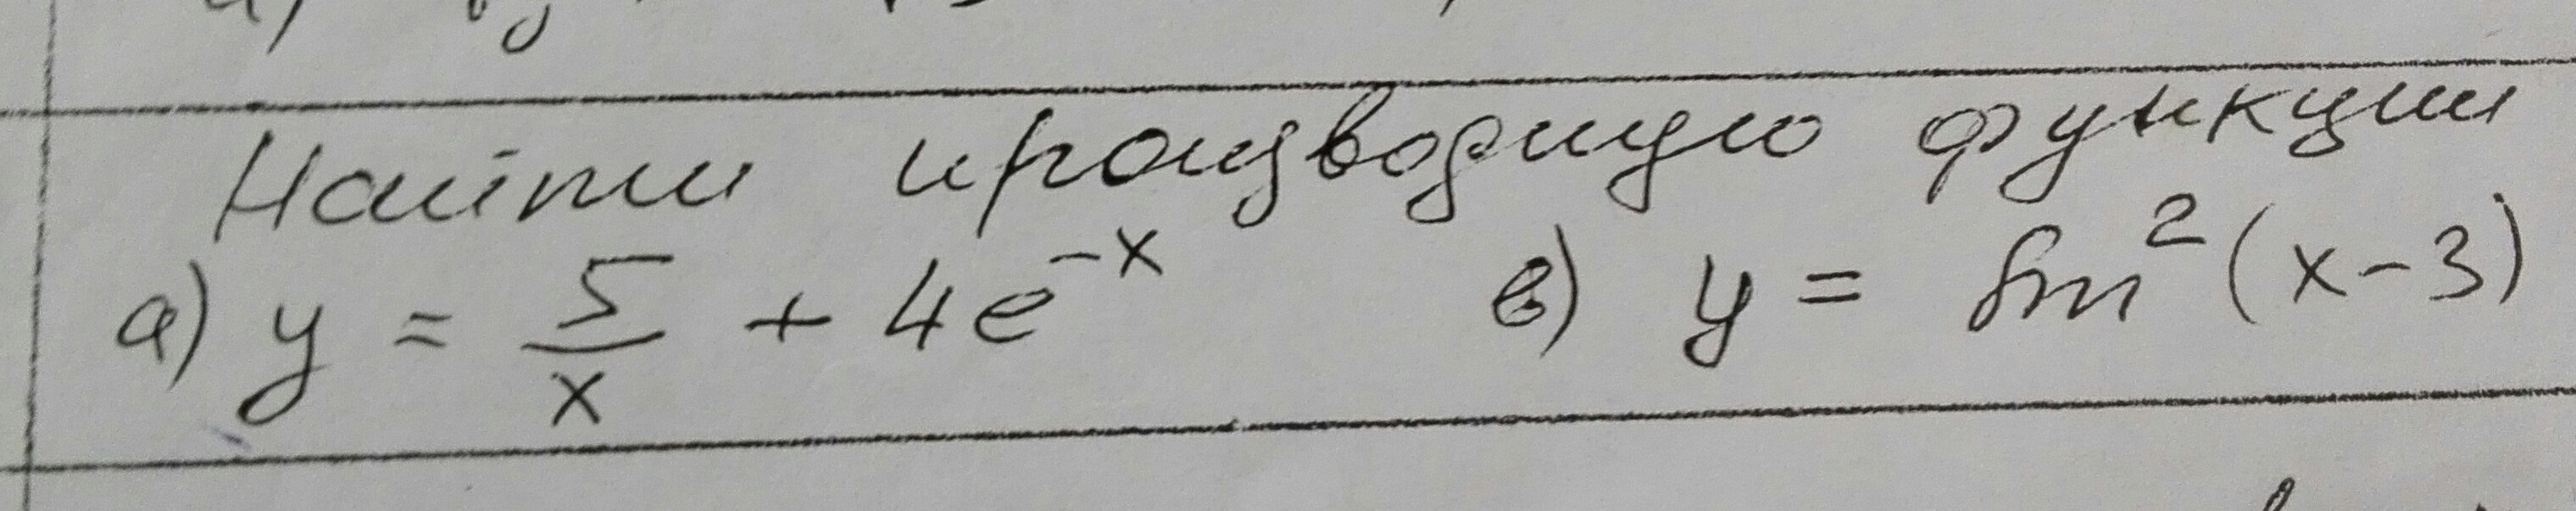 Найти производную функции
а) y = 5/x + 4e^{-x} в) y = sin²(x-3)